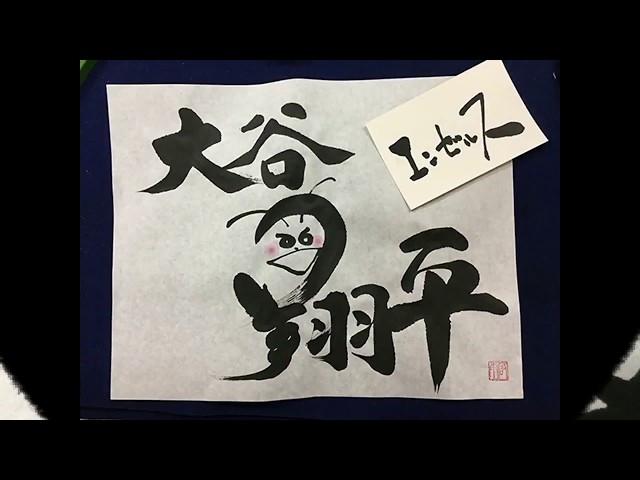 大谷
翔平
エンゼルス